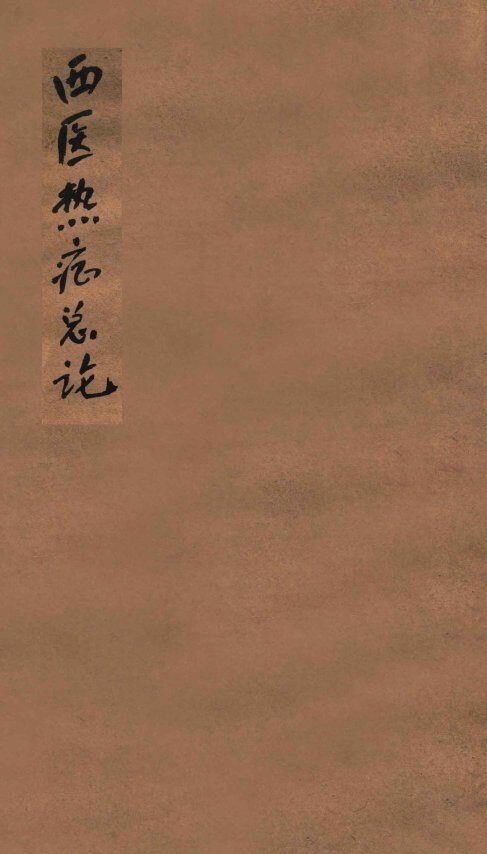 西医热症总论